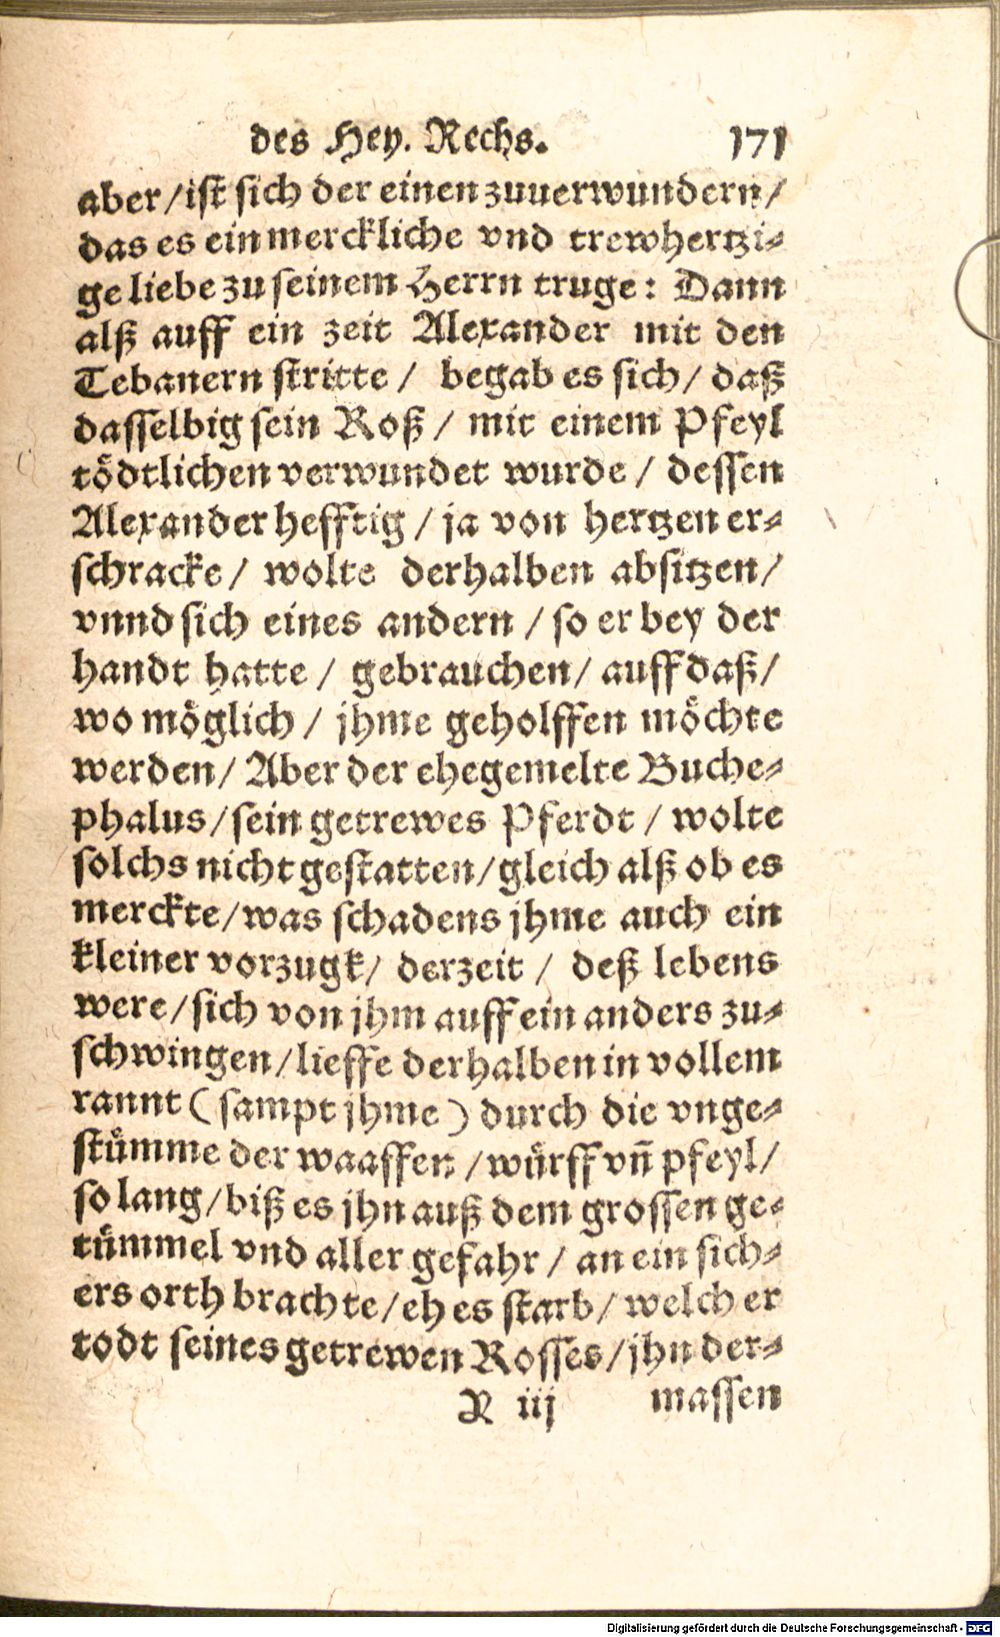 des Hey. Rechs. 171
aber / ist sich der einen zuuerwundern /
das es ein merckliche vnd trewhertzi⸗
ge liebe zu seinem Herrn truge: Dann
alß auff ein zeit Alexander mit den
Tebanern stritte / begab es sich / daß
dasselbig sein Roß / mit einem Pfeyl
tödtlichen verwundet wurde / dessen
Alexander hefftig / ja von hertzen er⸗
schracke / wolte derhalben absitzen /
vnnd sich eines andern / so er bey der
handt hatte / gebrauchen / auff daß /
wo möglich / jhme geholffen möchte
werden / Aber der ehegemelte Buche⸗
phalus / sein getrewes Pferdt / wolte
solchs nicht gestatten / gleich alß ob es
merckte / was schadens jhme auch ein
kleiner vorzugk / derzeit / deß lebens
were / sich von jhm auff ein anders zu⸗
schwingen / lieffe derhalben in vollem
rannt ( sampt jhme ) durch die vnge⸗
stümme der waaffen / würff vñ pfeyl /
so lang / biß es jhn auß dem grossen ge⸗
tümmel vnd aller gefahr / an ein sich⸗
ers orth brachte / eh es starb / welcher
todt seines getrewen Rosses / jhn der⸗
R iij massen
Digitalisierung gefördert durch die Deutsche Forschungsgemeinschaft - DFG